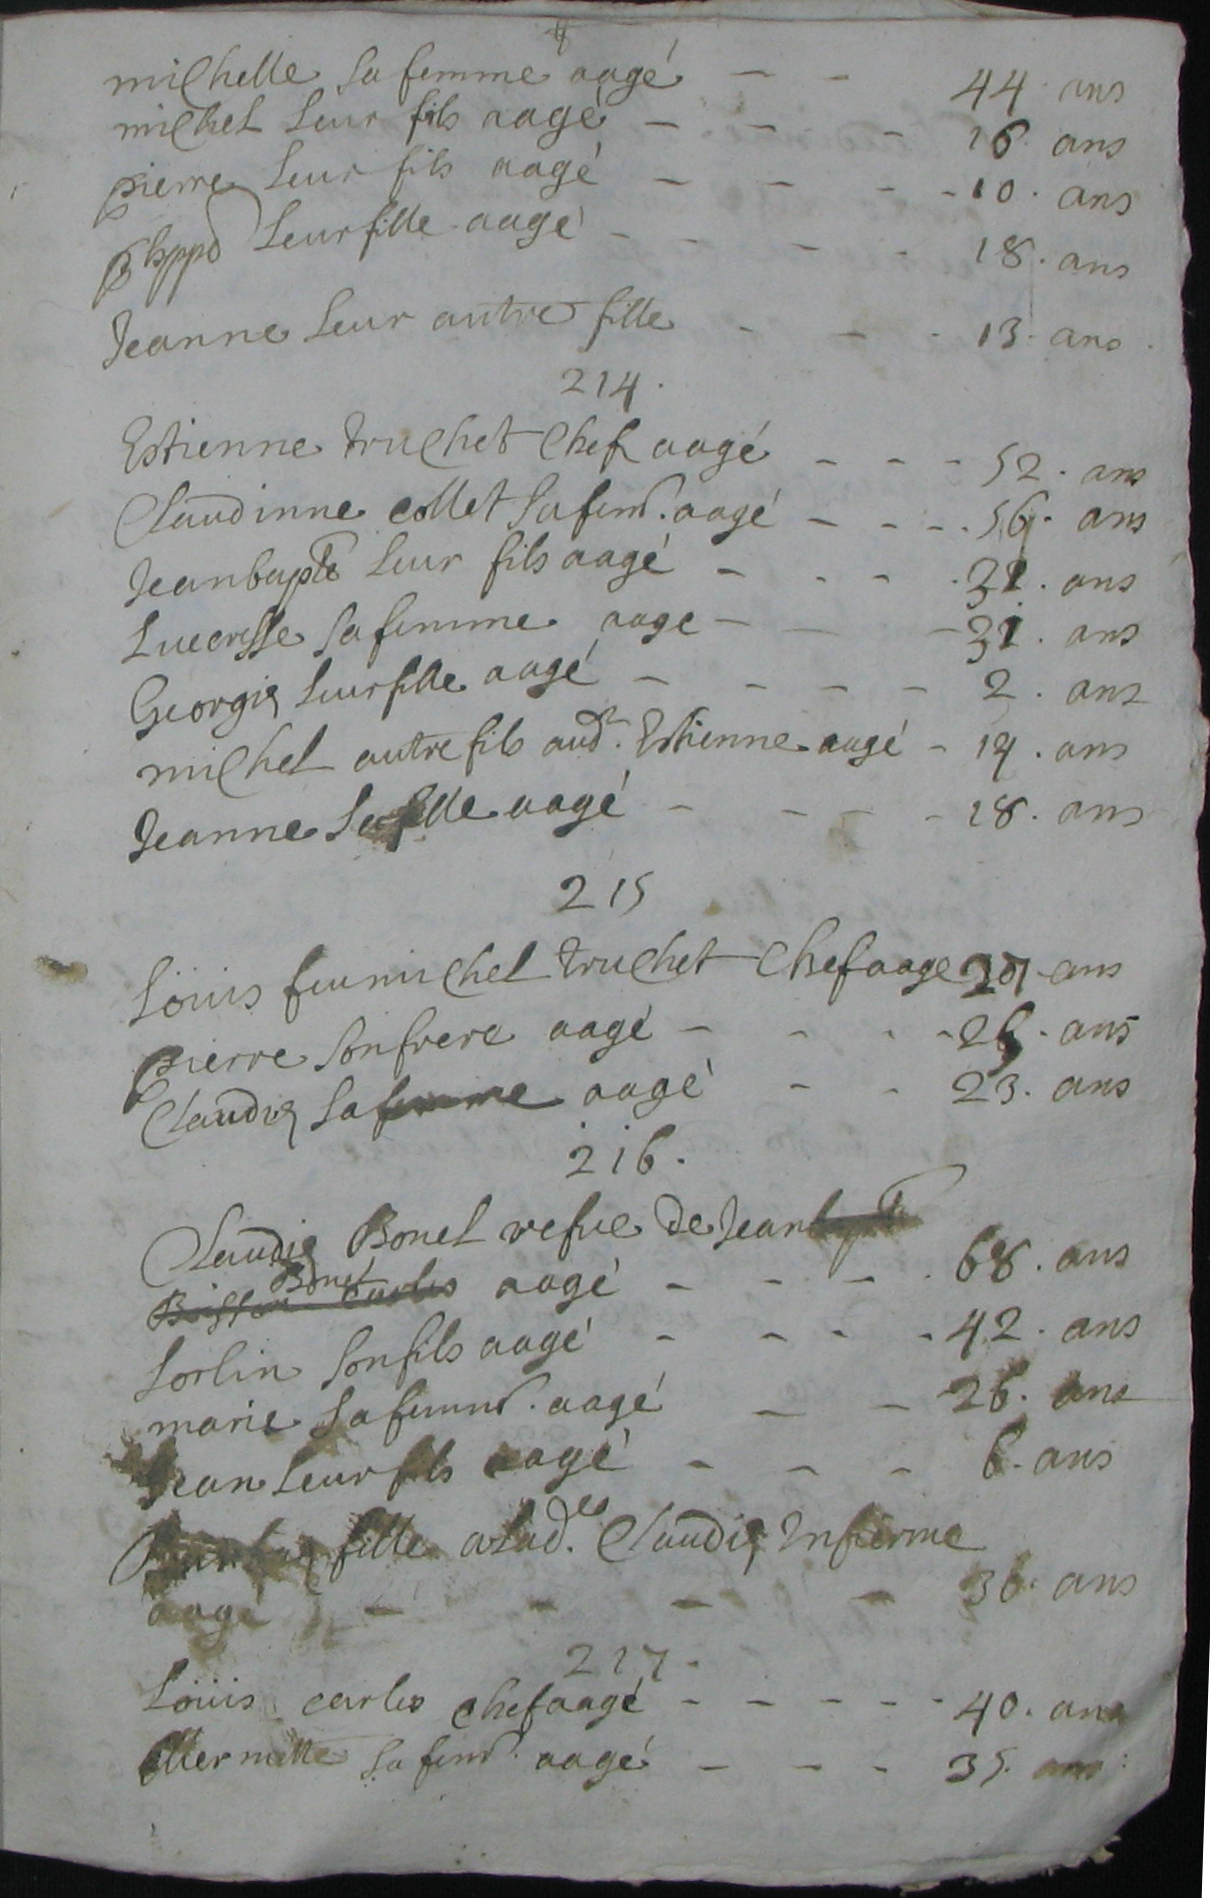 michelle sa femme aagé - - 44 ans
michel leur fils aagé - - - 16. ans
pierre leur fils aagé - - - - 10. ans
leur fille aagé - - - - 18. ans
Jeanne leur autre fille - - - 13. ans
214.
Estienne truchet chef aagé - - - 52. ans
Claudinne collet sa fem. aagé - - - - 56. ans
Jeanbapte leur fils aagé - - - - ans
Lucresse sa femme aage - - - 31. ans
Georgia leur fille aagé - - - - 2. ans
michel autre fils aud. Estienne aagé - 14. ans
Jeanne sa fille aagé - - - - 18. ans
215
Loüis feu michel truchet chef aage ans
pierre son frere aagé - - - - ans
Claudia sa femme aagé - - 23. ans
216.
Claudia Bonel vefue de Jeanbapte
Bonet carles aagé - - - - 68. ans
Sorlin son fils aagé - - - - 42. ans
marie sa femme. aagé - - 26. ans
Jean leur fils aagé - - - 6. ans
fille a lad. Claudia Infirme
aagé - - - - 36. ans
217.
Loüis carles chef aagé - - - - - 40. ans
Mermette sa fem. aagé - - - 35. ans